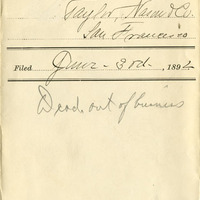 Taylor, Nason & Co.
San Francisco
Filed June 3rd. 1892
Dead, out of business